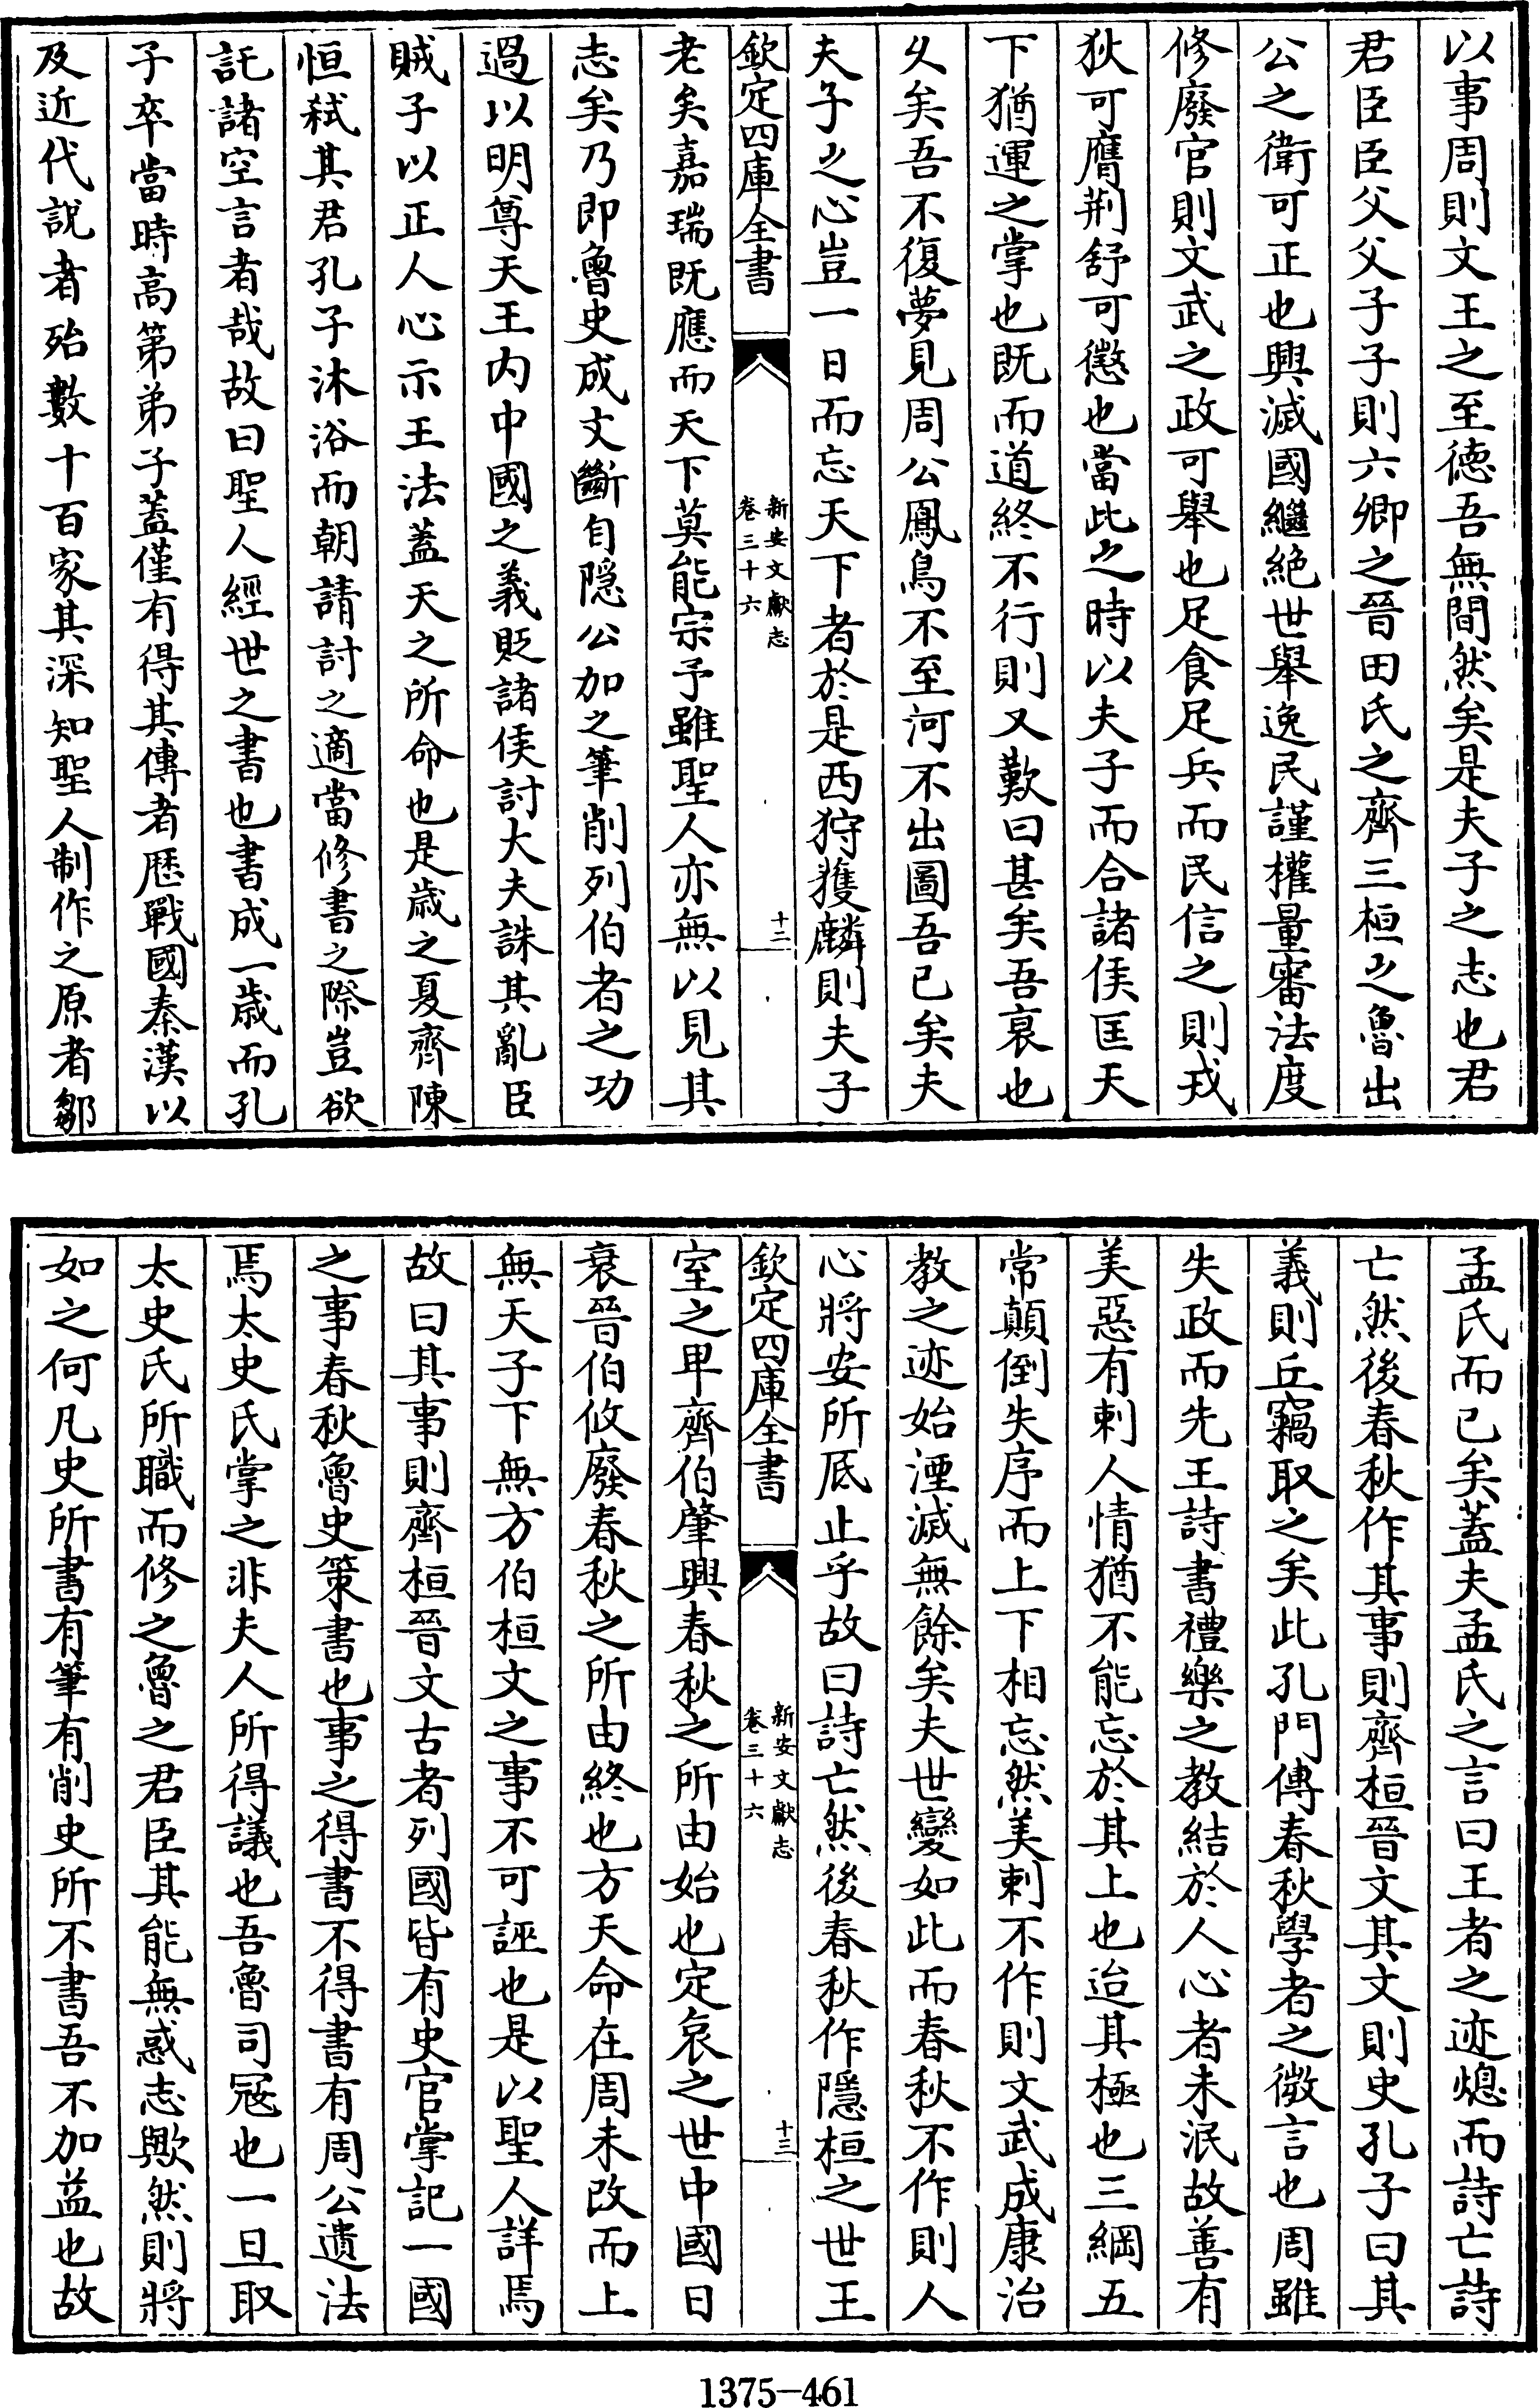 以事周則文王之至德吾無間然矣是夫子之志也君
君臣臣父父子子則六卿之晉田氏之齊三桓之魯出
公之衛可正也興滅國繼絶世舉逸民謹權量審法度
修廢官則文武之政可舉也足食足兵而民信之則戎
狄可膺荆舒可懲也當此之時以夫子而合諸侯匡天
下猶運之掌也既而道終不行則又歎曰甚矣吾衰也
久矣吾不復夢見周公鳳鳥不至河不出圖吾已矣夫
夫子之心豈一日而忘天下者於是西狩獲麟則夫子
欽定四庫全書
新安文獻志
卷三十六
十二
老矣嘉瑞既應而天下莫能宗予雖聖人亦無以見其
志矣乃即魯史成文斷自隱公加之筆削列伯者之功
過以明尊天王内中國之義貶諸侯討大夫誅其亂臣
賊子以正人心示王法蓋天之所命也是歲之夏齊陳
恒弑其君孔子沐浴而朝請討之適當修書之際豈欲
託諸空言者哉故曰聖人經世之書也書成一歲而孔
子卒當時高第弟子蓋僅有得其傳者歷戰國秦漢以
及近代說者殆數十百家其深知聖人制作之原者鄒
孟氏而已矣蓋夫孟氏之言曰王者之迹熄而詩亡詩
亡然後春秋作其事則齊桓晉文其文則史孔子曰其
義則丘竊取之矣此孔門傳春秋學者之微言也周雖
失政而先王詩書禮樂之教結於人心者未泯故善有
美惡有刺人情猶不能忘於其上也迨其極也三綱五
常顛倒失序而上下相忘然美刺不作則文武成康治
教之迹始湮滅無餘矣夫世變如此而春秋不作則人
心將安所底止乎故曰詩亡然後春秋作隱桓之世王
欽定四庫全書
新安文獻志
卷三十六
十三
室之卑齊伯肇興春秋之所由始也定哀之世中國日
衰晉伯攸廢春秋之所由終也方天命在周未改而上
無天子下無方伯桓文之事不可誣也是以聖人詳焉
故曰其事則齊桓晉文古者列國皆有史官掌記一國
之事春秋魯史策書也事之得書不得書有周公遺法
焉太史氏掌之非夫人所得議也吾魯司冦也一旦取
太史氏所職而修之魯之君臣其能無惑志歟然則將
如之何凡史所書有筆有削史所不書吾不加益也故
1375-461